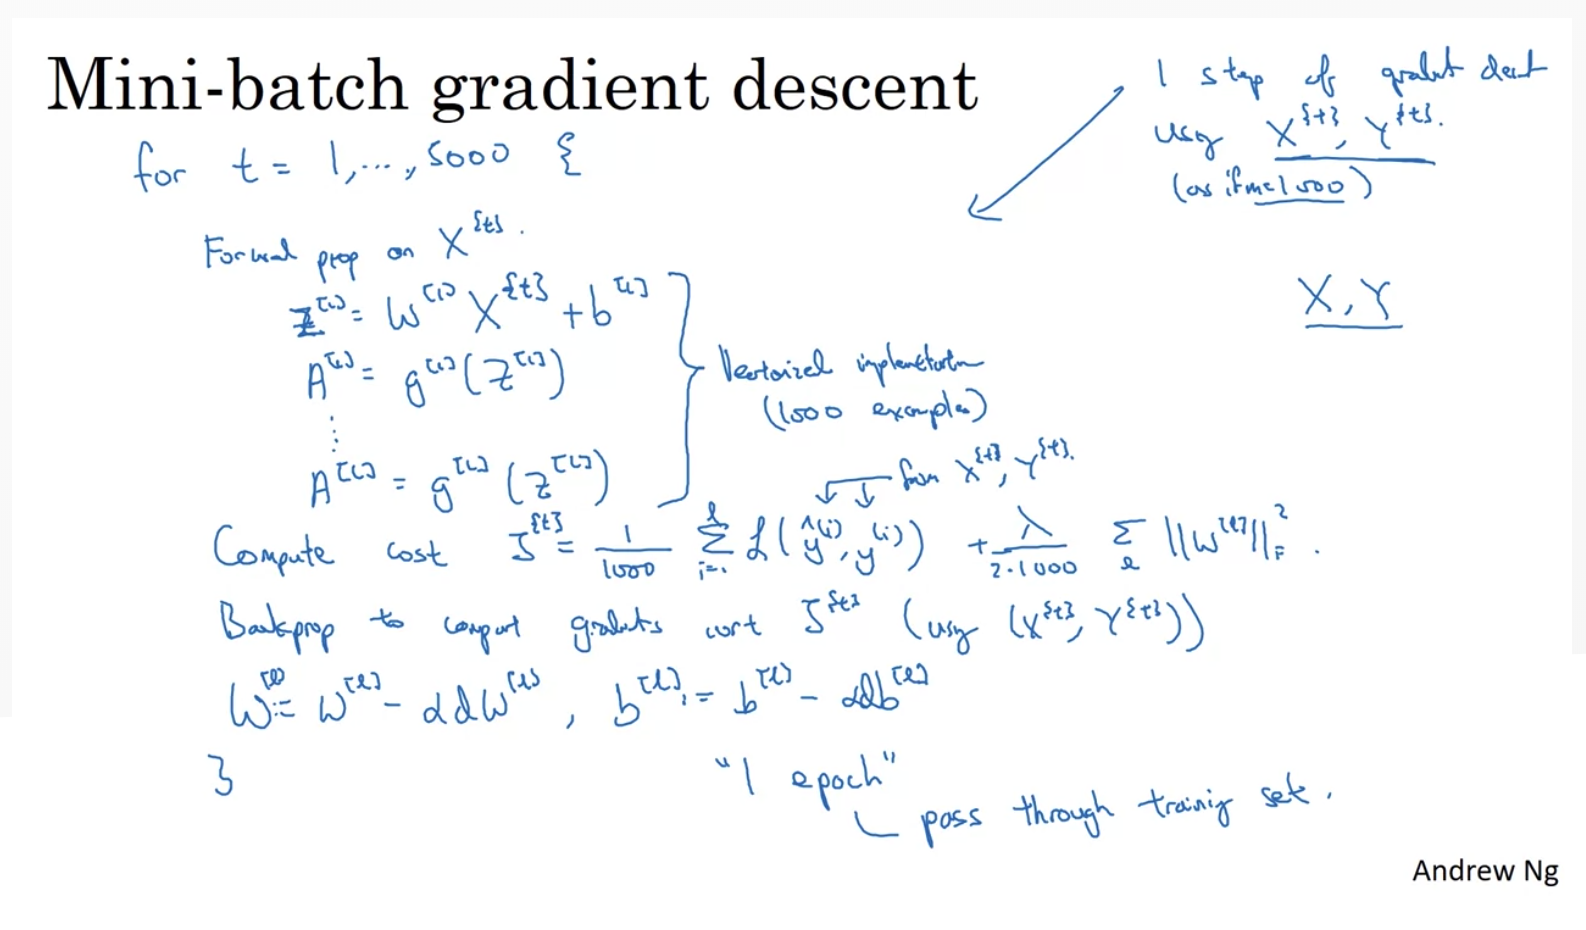 Mini-batch gradient descent
1 step of gradient descent
using X^{t}, Y^{t}.
(as if m=1000)
for t = 1,..., 5000 {
Forward prop on X^{t}.
X, Y
Z^[1] = W^[1] X^{t} + b^[1]
A^[1] = g^[1](Z^[1])
Vectorized implementation
(1000 examples)
⋮
A^[L] = g^[L](Z^[L])
from X^{t}, Y^{t}.
Compute cost J^{t} = 1/1000 Σ_{i=1}^{l} L(ŷ^(i), y^(i)) + λ/(2·1000) Σ_l ||W^[l]||_F^2.
Backprop to compute gradients wrt J^{t} (using (X^{t}, Y^{t}))
W^[l] := W^[l] - αdW^[l], b^[l] := b^[l] - αdb^[l]
}
"1 epoch"
pass through training set.
Andrew Ng